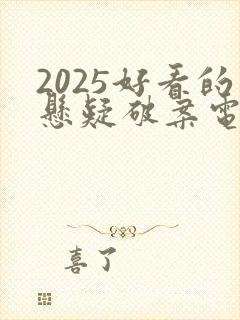 2025好看的
悬疑破案电
喜了